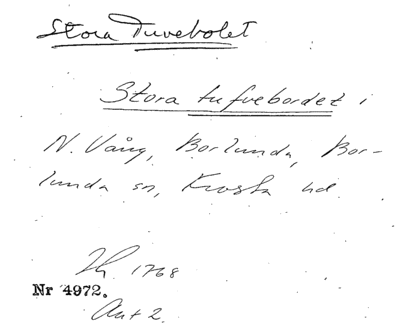 Stora Tuvebolet
Stora tufvebordet i
N. Vång, Borlunda, Bor-
lunda sn, Frosta hd.
Lh 1768
Nr 4972.
Akt 2.